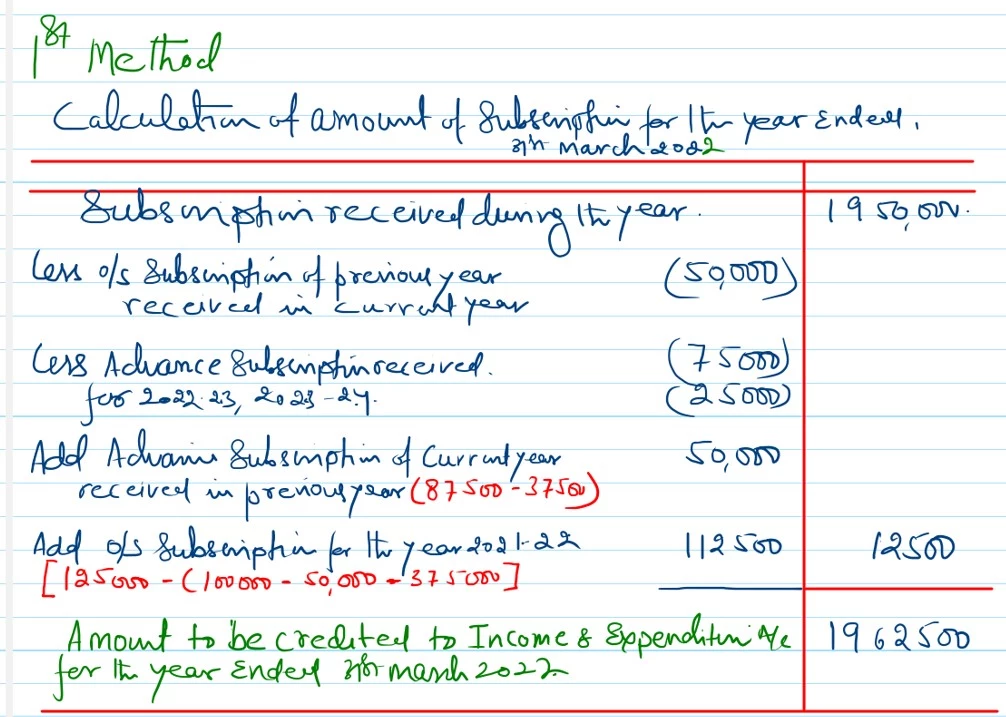 1st Method
Calculation of amount of Subscription for the year Ended,
31st March 2022
Subscription received during the year. 1950,000.
Less o/s Subscription of previous year (50,000)
received in current year
Less Advance Subscription received. (75000)
for 2022-23, 2023-24. (25000)
Add Advance Subscription of Current year 50,000
received in previous year (87500-37500)
Add o/s Subscription for the year 2021-22 112500 12500
[125000 - (100000 - 50,000 - 375000]
Amount to be credited to Income & Expenditure A/c 1962500
for the year Ended 31st march 2022